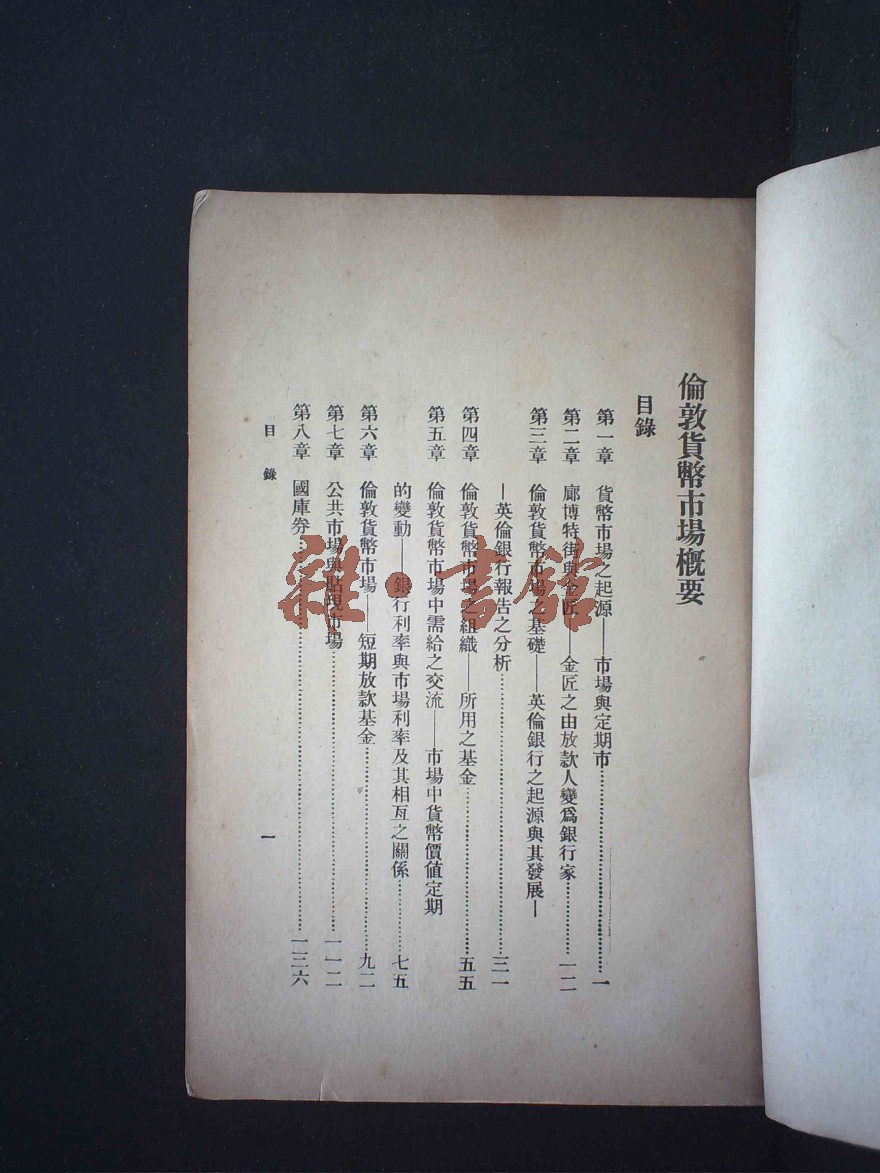 倫敦貨幣市場概要
目錄
第一章　貨幣市場之起源——市場與定期市……一
第二章　廊博特街與金匠——金匠之由放款人變爲銀行家……一二
第三章　倫敦貨幣市場之基礎——英倫銀行之起源與其發展—
—英倫銀行報告之分析……三一
第四章　倫敦貨幣市場之組織——所用之基金……五五
第五章　倫敦貨幣市場中需給之交流——市場中貨幣價值定期
的變動——銀行利率與市場利率及其相互之關係……七五
第六章　倫敦貨幣市場——短期放款基金……九二
第七章　公共市場與貼現市場……一一二
第八章　國庫券……一三六
目錄　一
雜·書館